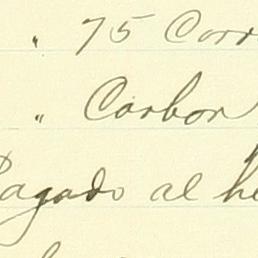 " 75 Corr
" Carbon
Pagado al he